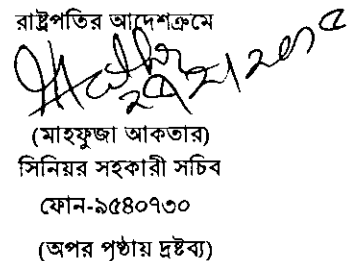 রাষ্ট্রপতির আদেশক্রমে
(মাহফুজা আকতার)
সিনিয়র সহকারী সচিব
ফোন-৯৫৪০৭৩০
(অপর পৃষ্ঠায় দ্রষ্টব্য)